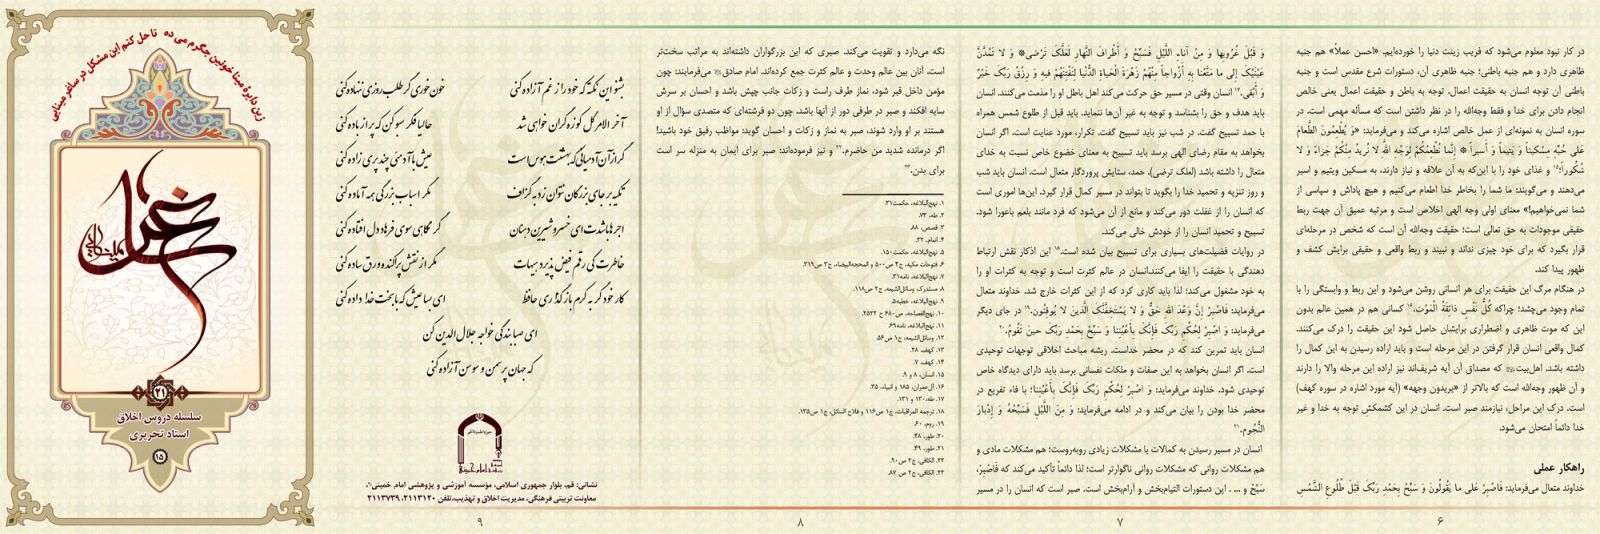 در کار نبود معلوم می‌شود که فریب زینت دنیا را خورده‌ایم. «احسن عملاً» هم جنبه
ظاهری دارد و هم جنبه باطنی؛ جنبه ظاهری آن، دستورات شرع مقدس است و جنبه
باطنی آن توجه انسان به حقیقت اعمال. توجه به باطن و حقیقت اعمال یعنی خالص
انجام دادن برای خدا و فقط وجه‌الله را در نظر داشتن است که مسأله مهمی است. در
سوره انسان به نمونه‌ای از عمل خالص اشاره می‌کند و می‌فرماید: «وَ يُطْعِمُونَ الطَّعامَ
عَلى حُبِّهِ مِسْكيناً وَ يَتيماً وَ أَسيراً * إِنَّما نُطْعِمُكُمْ لِوَجْهِ اللَّهِ لا نُريدُ مِنْكُمْ جَزاءً وَ لا
شُكُوراً»؛۱۵ و غذای خود را با این‌که به آن علاقه و نیاز دارند، به مسکین ویتیم و اسیر
می‌دهند و می‌گویند: ما شما را بخاطر خدا اطعام می‌کنیم و هیچ پاداش و سپاسی از
شما نمی‌خواهیم!» معنای اولی وجه الهی اخلاص است و مرتبه عمیق آن جهت ربط
حقیقی موجودات به حق تعالی است؛ حقیقت وجه‌الله آن است که شخص در مرحله‌ای
قرار بگیرد که برای خود چیزی نداند و نبیند و ربط واقعی و حقیقی برایش کشف و
ظهور پیدا کند.
در هنگام مرگ این حقیقت برای هر انسانی روشن می‌شود و این ربط و وابستگی را با
تمام وجود می‌چشد؛ چراکه كُلُّ نَفْسٍ ذائِقَةُ الْمَوْتِ.۱۶ کسانی هم در همین عالم بدون
این که موت ظاهری و اضطراری برایشان حاصل شود این حقیقت را درک می‌کنند.
کمال واقعی انسان قرار گرفتن در این مرحله است و باید اراده رسیدن به این کمال را
داشته باشد. اهل‌بیت که مصداق آن آیه شریف‌اند نیز اراده این مرحله والا را دارند
و آن ظهور وجه‌الله است که بالاتر از «یریدون وجهه» (آیه مورد اشاره در سوره کهف)
است. درک این مراحل، نیازمند صبر است. انسان در این کشمکش توجه به خدا و غیر
خدا دائماً امتحان می‌شود.
راهکار عملی
خداوند متعال می‌فرماید: فَاصْبِرْ عَلى ما يَقُولُونَ وَ سَبِّحْ بِحَمْدِ رَبِّكَ قَبْلَ طُلُوعِ الشَّمْسِ
۶
وَ قَبْلَ غُرُوبِها وَ مِنْ آناءِ اللَّيْلِ فَسَبِّحْ وَ أَطْرافَ النَّهارِ لَعَلَّكَ تَرْضى * وَ لا تَمُدَّنَّ
عَيْنَيْكَ إِلى ما مَتَّعْنا بِهِ أَزْواجاً مِنْهُمْ زَهْرَةَ الْحَياةِ الدُّنْيا لِنَفْتِنَهُمْ فيهِ وَ رِزْقُ رَبِّكَ خَيْرٌ
وَ أَبْقى.۱۷ انسان وقتی در مسیر حق حرکت می‌کند اهل باطل او را مذمت می‌کنند. انسان
باید هدف و حق را بشناسد و توجه به غیر آن‌ها ننماید. باید قبل از طلوع شمس همراه
با حمد تسبیح گفت. در شب نیز باید تسبیح گفت. تکرار، مورد عنایت است. اگر انسان
بخواهد به مقام رضای الهی برسد باید تسبیح به معنای خضوع خاص نسبت به خدای
متعال را داشته باشد (لعلک ترضی). حمد، ستایش پروردگار متعال است. انسان باید شب
و روز تنزیه و تحمید خدا را بگوید تا بتواند در مسیر کمال قرار گیرد. این‌ها اموری است
که انسان را از غفلت دور می‌کند و مانع از آن می‌شود که فرد مانند بلعم باعورا شود.
تسبیح و تحمید انسان را از خودش خالی می‌کند.
در روایات فضیلت‌های بسیاری برای تسبیح بیان شده است.۱۸ این اذکار نقش ارتباط
دهندگی با حقیقت را ایفا می‌کنند.انسان در عالم کثرت است و توجه به کثرات او را
به خود مشغول می‌کند؛ لذا باید کاری کرد که از این کثرات خارج شد. خداوند متعال
می‌فرماید: فَاصْبِرْ إِنَّ وَعْدَ اللَّهِ حَقٌّ وَ لا يَسْتَخِفَّنَّكَ الَّذينَ لا يُوقِنُونَ.۱۹ در جای دیگر
می‌فرماید: وَ اصْبِرْ لِحُكْمِ رَبِّكَ فَإِنَّكَ بِأَعْيُنِنا وَ سَبِّحْ بِحَمْدِ رَبِّكَ حينَ تَقُومُ.۲۰
انسان باید تمرین کند که در محضر خداست. ریشه مباحث اخلاقی توجهات توحیدی
است. اگر انسان بخواهد به این صفات و ملکات نفسانی برسد باید دارای دیدگاه خاص
توحیدی شود. خداوند می‌فرماید: وَ اصْبِرْ لِحُكْمِ رَبِّكَ فَإِنَّكَ بِأَعْيُنِنا؛ با فاء تفریع در
محضر خدا بودن را بیان می‌کند و در ادامه می‌فرماید: وَ مِنَ اللَّيْلِ فَسَبِّحْهُ وَ إِدْبارَ
النُّجُومِ.۲۱
انسان در مسیر رسیدن به کمالات با مشکلات زیادی روبه‌روست؛ هم مشکلات مادی و
هم مشکلات روانی که مشکلات روانی ناگوارتر است؛ لذا دائماً تأکید می‌کند که فَاصْبِرْ،
سَبِّحْ و ... . این دستورات التیام‌بخش و آرام‌بخش است. صبر است که انسان را در مسیر
۷
نگه می‌دارد و تقویت می‌کند. صبری که این بزرگواران داشته‌اند به مراتب سخت‌تر
است. آنان بین عالم وحدت و عالم کثرت جمع کرده‌اند. امام صادق می‌فرمایند: چون
مؤمن داخل قبر شود، نماز طرف راست و زکات جانب چپش باشد و احسان بر سرش
سایه افکند و صبر در طرفی دور از آنها باشد. چون دو فرشته‌ای که متصدی سؤال از او
هستند بر او وارد شوند، صبر به نماز و زکات و احسان گوید: مواظب رفیق خود باشید!
اگر درمانده شدید من حاضرم.۲۲ و نیز فرموده‌اند: صبر برای ایمان به منزله سر است
برای بدن.۲۳
۱. نهج‌البلاغه، حکمت۳۱.
۲. طه، ۷۳.
۳. قصص، ۸۸.
۴. انعام، ۳۲.
۵. نهج‌البلاغه، حکمت۱۵۰.
۶. فتوحات مکیه، ج۴ ص۵۰۰ و المحجةالبیضاء، ج۳ ص۳۱۹.
۷. نهج‌البلاغه، نامه۳۱.
۸. مستدرک وسائل‌الشیعه، ج۲ ص۱۱۸.
۹. نهج‌البلاغه، خطبه۵.
۱۰. نهج‌الفصاحه، ص۶۸۰ ح ۲۵۲۳.
۱۱. نهج‌البلاغه، نامه۶۹
۱۲. وسائل‌الشیعه، ج۱ ص۵۶
۱۳. کهف، ۲۸.
۱۴. کهف، ۷.
۱۵. انسان، ۸ و ۹.
۱۶. آل‌عمران، ۱۸۵ و انبیاء، ۳۵.
۱۷. طه، ۱۳۰ و ۱۳۱.
۱۸. ترجمه المراقبات، ج۱ ص۱۱۶ و فلاح السائل، ج۱ ص۱۳۵.
۱۹. روم، ۶۰.
۲۰. طور، ۴۸.
۲۱. طور، ۴۹.
۲۲. الکافی، ج۲ ص۹۰.
۲۳. الکافی، ج۲ ص۸۷
۸
بشنو این نکته که خود را ز غم آزاده کنی خون خوری گر طلب روزی ننهاده کنی
آخر الامر گل کوزه گران خواهی شد حالیا فکر سبو کن که پر از باده کنی
گر از آن آدمیانی که بهشت هوس است عیش با آدمی چند پری زاده کنی
تکیه بر جای بزرگان نتوان زد به گزاف مگر اسباب بزرگی همه آماده کنی
اجرها باشدت ای خسرو شیرین دهنان گر نگاهی سوی فرهاد دل افتاده کنی
خاطرت کی رقم فیض پذیرد هیهات مگر از نقش پراکنده ورق ساده کنی
کار خود گر به کرم بازگذاری حافظ ای بسا عیش که با بخت خدا داده کنی
ای صبا بندگی خواجه جلال الدین کن
که جهان پر سمن و سوسن آزاده کنی
نشانی: قم، بلوار جمهوری اسلامی، مؤسسه آموزشی و پژوهشی امام خمینی،
معاونت تربیتی فرهنگی، مدیریت اخلاق و تهذیب،تلفن ۲۱۱۳۱۲۰، ۲۱۱۳۷۳۹
۹
زین دایرهٔ مینا خونین جگرم می ده تا حل کنم این مشکل در ساغر مینایی
۲۱
سلسله دروس اخلاق
استاد تحریری
۱۵